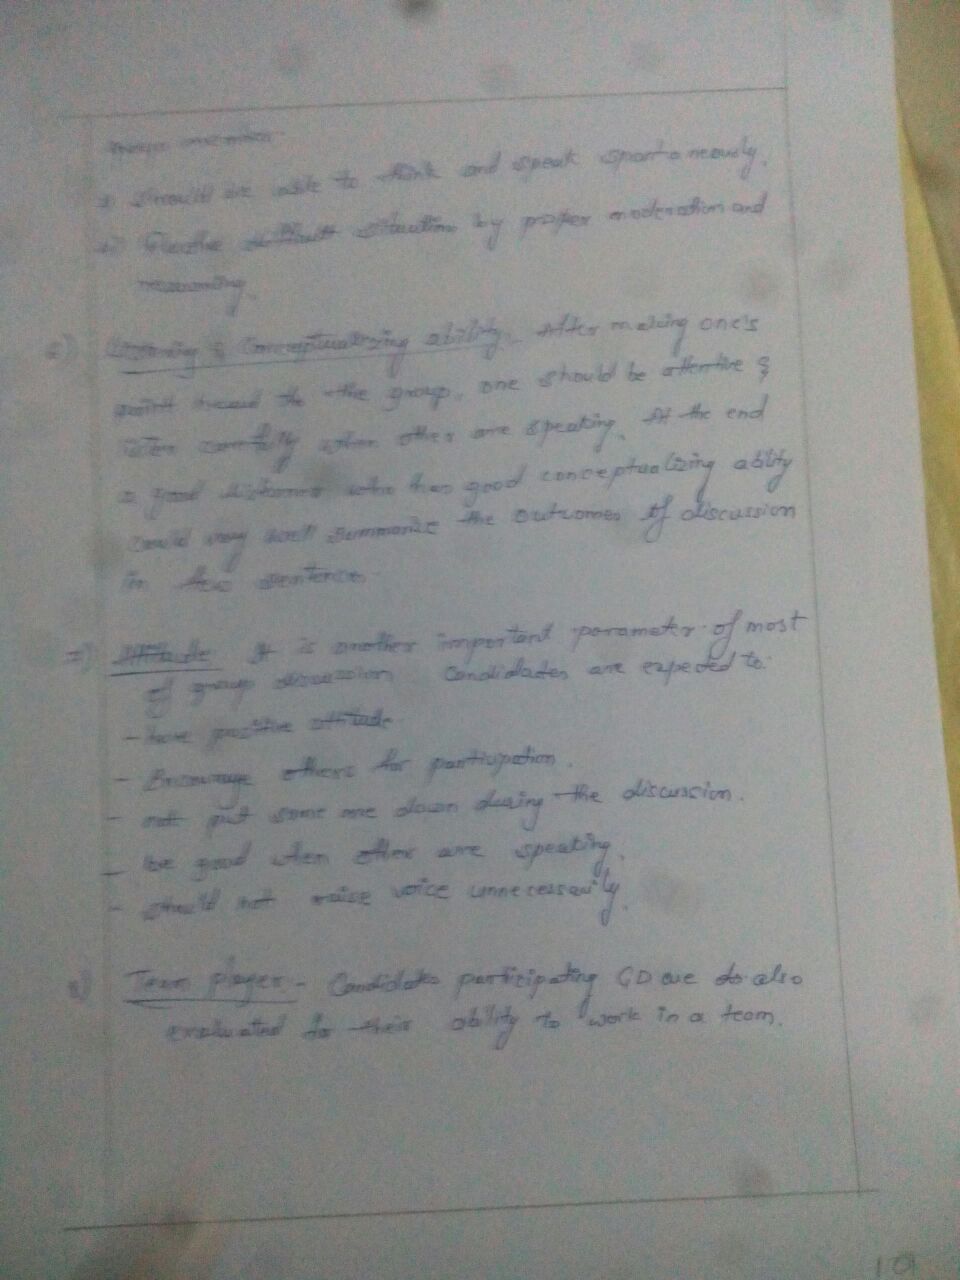 should be able to think and speak spontaneously.
situation by proper moderation and
reasoning.
Listening & Conceptualizing ability. After making one's
point the group, one should be attentive &
listen carefully when other are speaking. At the end
a good listener who has good conceptualizing ability
could very well summarize the outcomes of discussion
in few sentence.
Attitude It is another important parameter of most
of group discussion Candidates are expected to.
- have positive attitude
- Encourage others for participation.
- not put some one down during the discussion.
- be good when other are speaking.
- should not raise voice unnecessarily.
Team player - Candidates participating GD are to also
evaluated for their ability to work in a team.